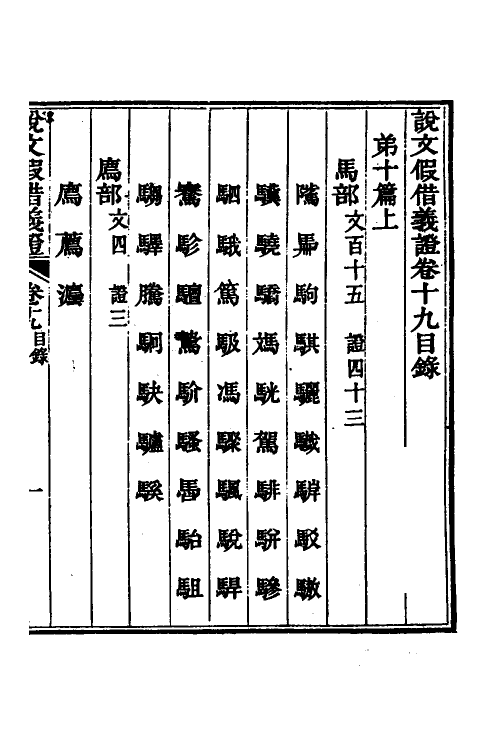 說文假借義證卷十九目錄
弟十篇上
馬部文百十五 證四十三
騭馵駒騏驪驖騲駁驐
驥驍驕媽駫駕騑駢驂
駟騀篤馺馮驟颿駾駻
騫駗驙騺駘騷馬駘駔
騶驛騰駉駃驢騱
廌部文四 證三
廌薦灋
說文假借義證 卷十九目錄 一